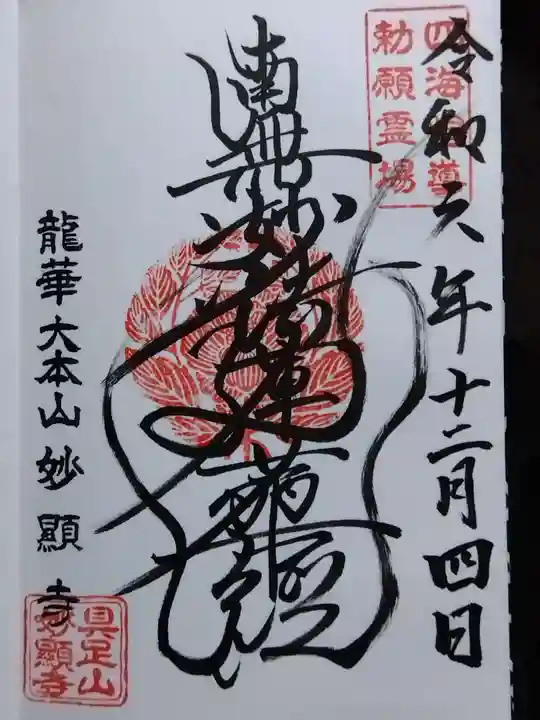 四海唱導
勅願霊場
令和六年十二月四日
南無妙法蓮華経
龍華大本山妙顯寺
具足山
妙顯寺